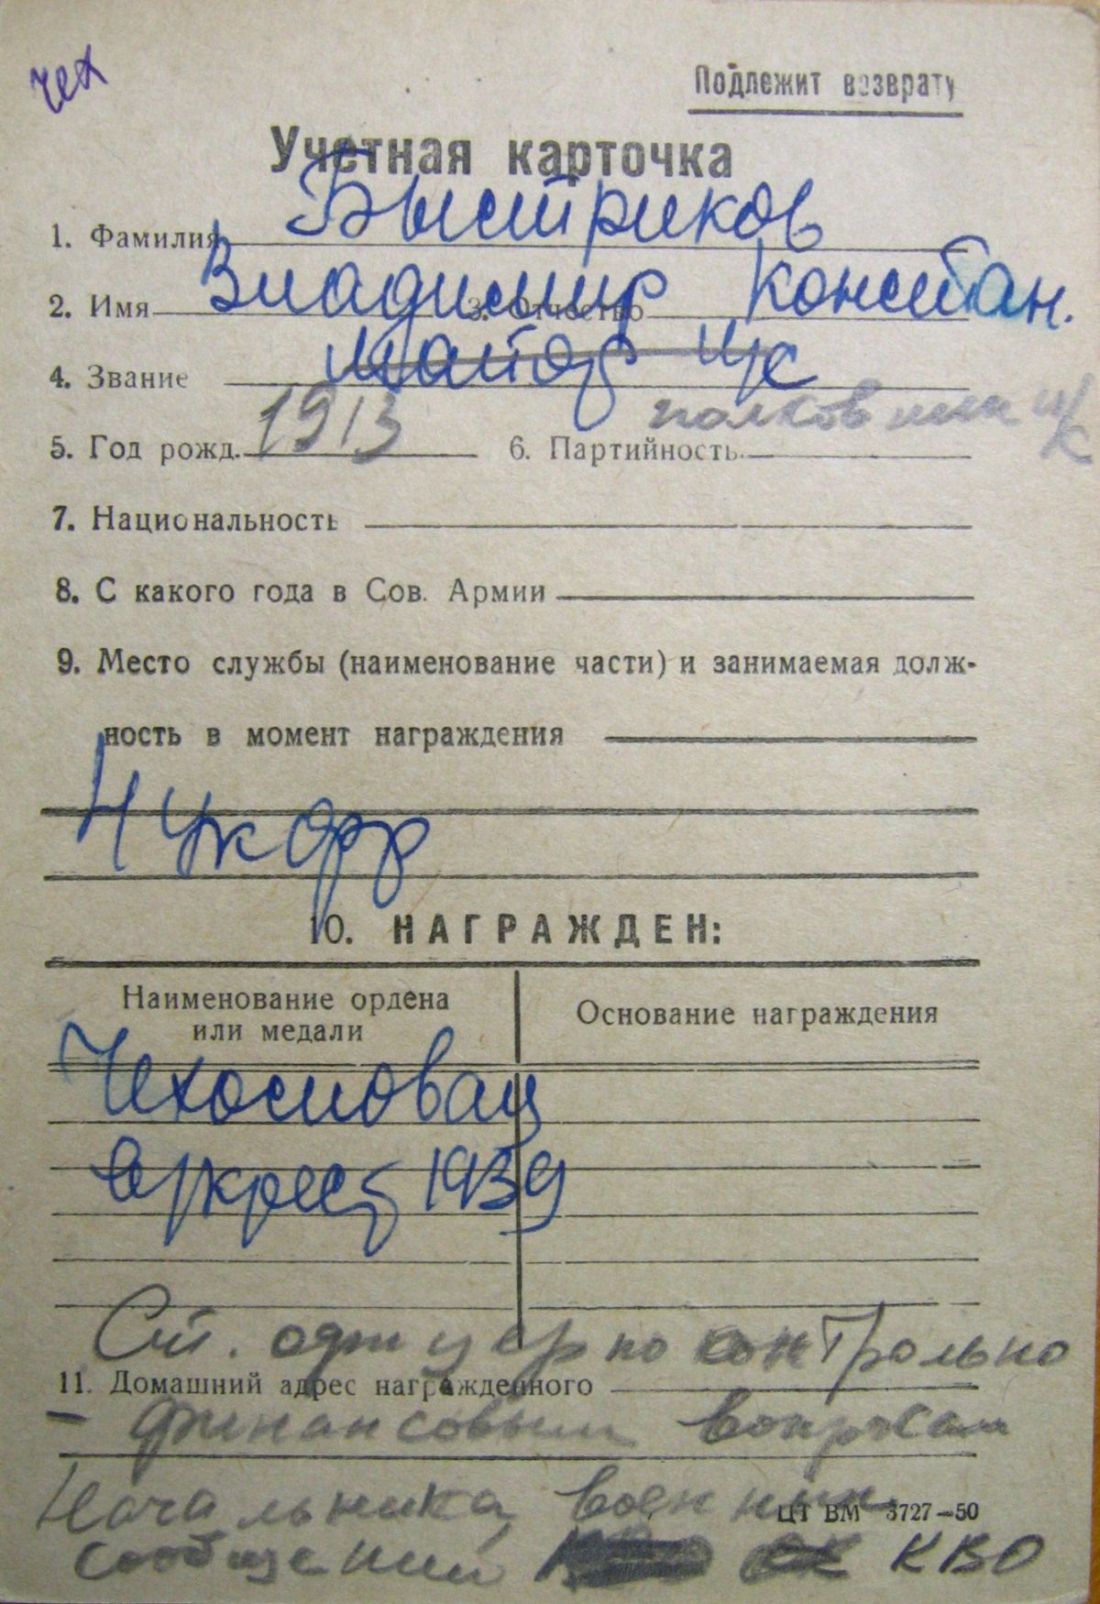 чех
Подлежит возврату
Учетная карточка
1. Фамилия Быстриков
2. Имя Владимир 3. Отчество Констан.
4. Звание майор и/с
полковник и/с
5. Год рожд. 1913 6. Партийность
7. Национальность
8. С какого года в Сов. Армии
9. Место службы (наименование части) и занимаемая долж-
ность в момент награждения
4 Укр фр
10. НАГРАЖДЕН:
Наименование ордена или медали
Основание награждения
Чехословац
в/крест 1939
Ст. офицер по контрольно
11. Домашний адрес награжденного
- финансовым вопросам
Начальника военных
ЦТ ВМ 3727—50
сообщений КВО